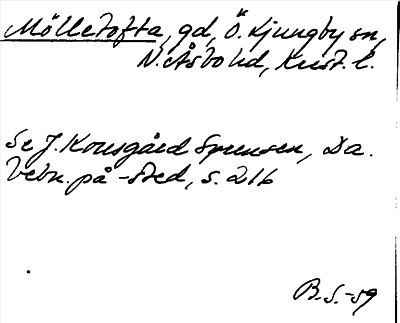 Mölletofta, gd, Ö. Ljungby sn,
N. Åsbo hd, Krist. l.
Se J. Kousgård Sørensen, Da.
Vebn. på -sted, s. 216
B.S.-59